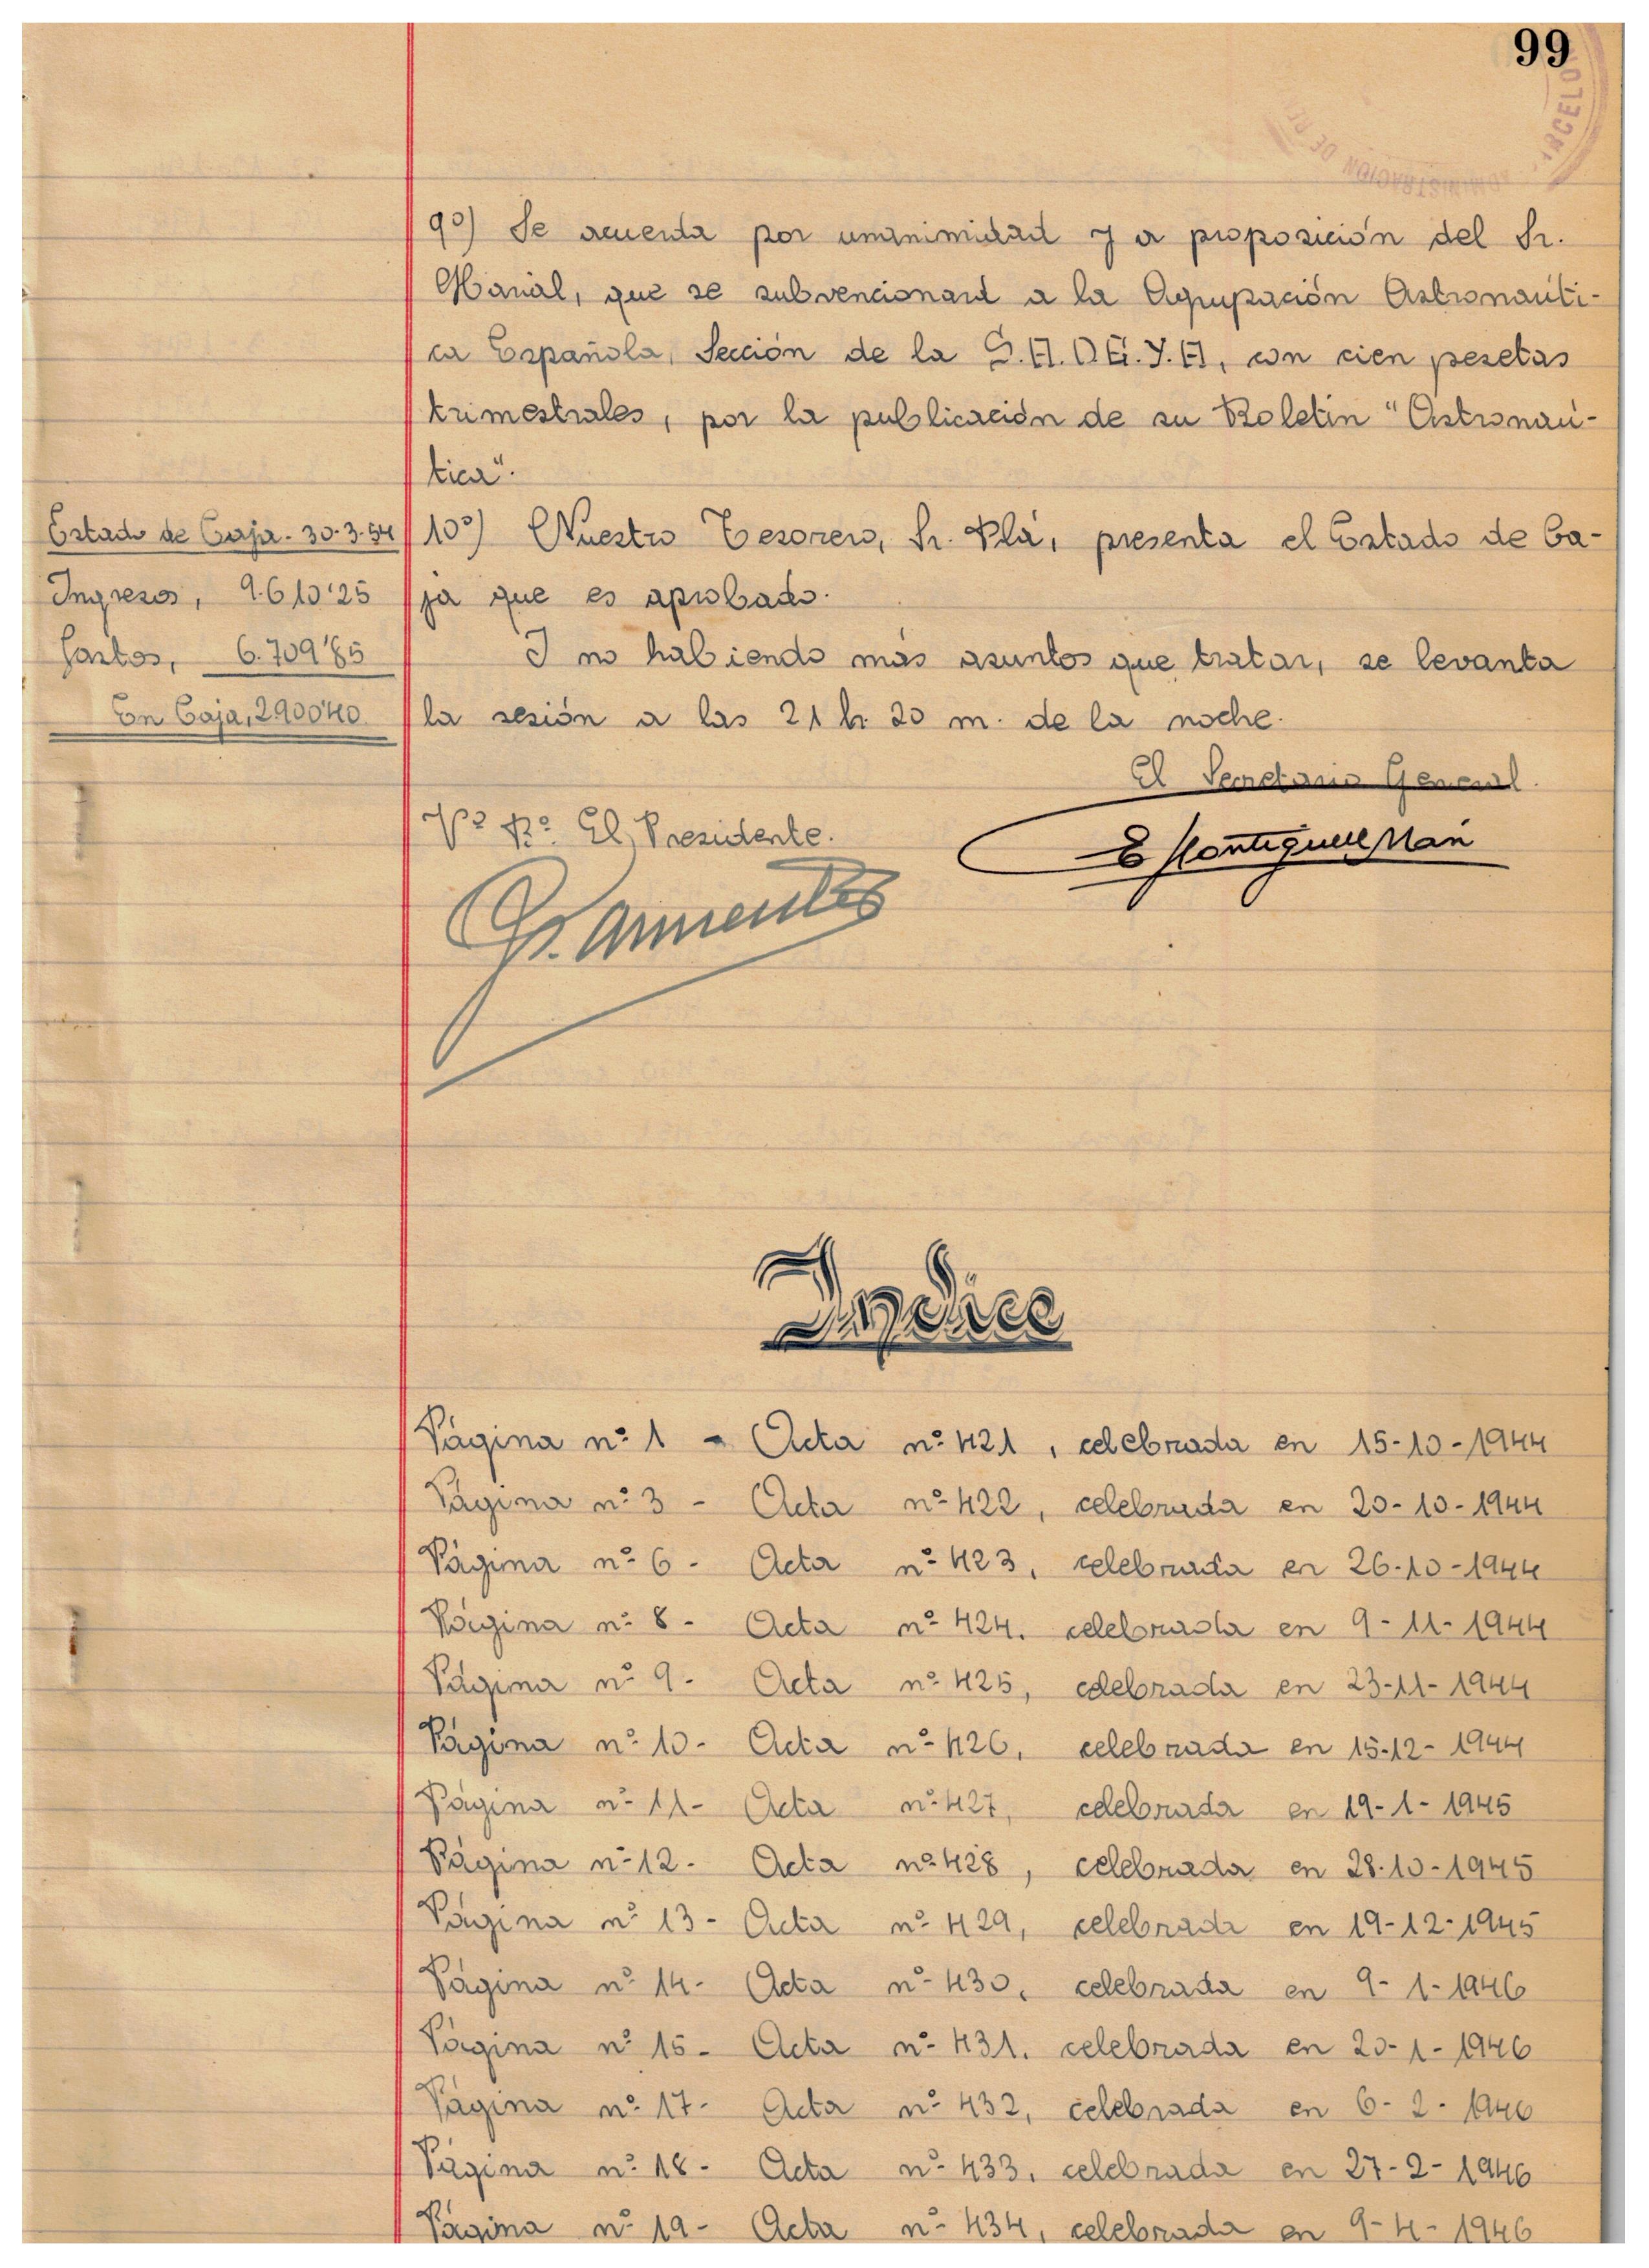 99
9º) Se acuerda por unanimidad y a proposición del Sr.
que se subvencionará a la Agrupación Astronáuti-
ca Española, Sección de la S.A.D.E.Y.A, con cien pesetas
trimestrales, por la publicación de su Boletín "Astronáu-
tica".
Estado de Caja. 30-3-54
Ingresos, 9.610'25
Gastos, 6.709'85
En Caja, 2.900'40
10º) Nuestro Tesorero, Sr. Plá, presenta el Estado de Ca-
ja que es aprobado.
Y no habiendo más asuntos que tratar, se levanta
la sesión a las 21 h. 20 m. de la noche.
El Secretario General.
Vº Bº El Presidente.
Indice
Página nº 1 - Acta nº 421, celebrada en 15-10-1944
Página nº 3 - Acta nº 422, celebrada en 20-10-1944
Página nº 6 - Acta nº 423, celebrada en 26-10-1944
Página nº 8 - Acta nº 424. celebrada en 9-11-1944
Página nº 9 - Acta nº 425, celebrada en 23-11-1944
Página nº 10 - Acta nº 426, celebrada en 15-12-1944
Página nº 11 - Acta nº 427, celebrada en 19-1-1945
Página nº 12 - Acta nº 428, celebrada en 28-10-1945
Página nº 13 - Acta nº 429, celebrada en 19-12-1945
Página nº 14 - Acta nº 430, celebrada en 9-1-1946
Página nº 15 - Acta nº 431. celebrada en 20-1-1946
Página nº 17 - Acta nº 432, celebrada en 6-2-1946
Página nº 18 - Acta nº 433, celebrada en 27-2-1946
Página nº 19 - Acta nº 434, celebrada en 9-4-1946